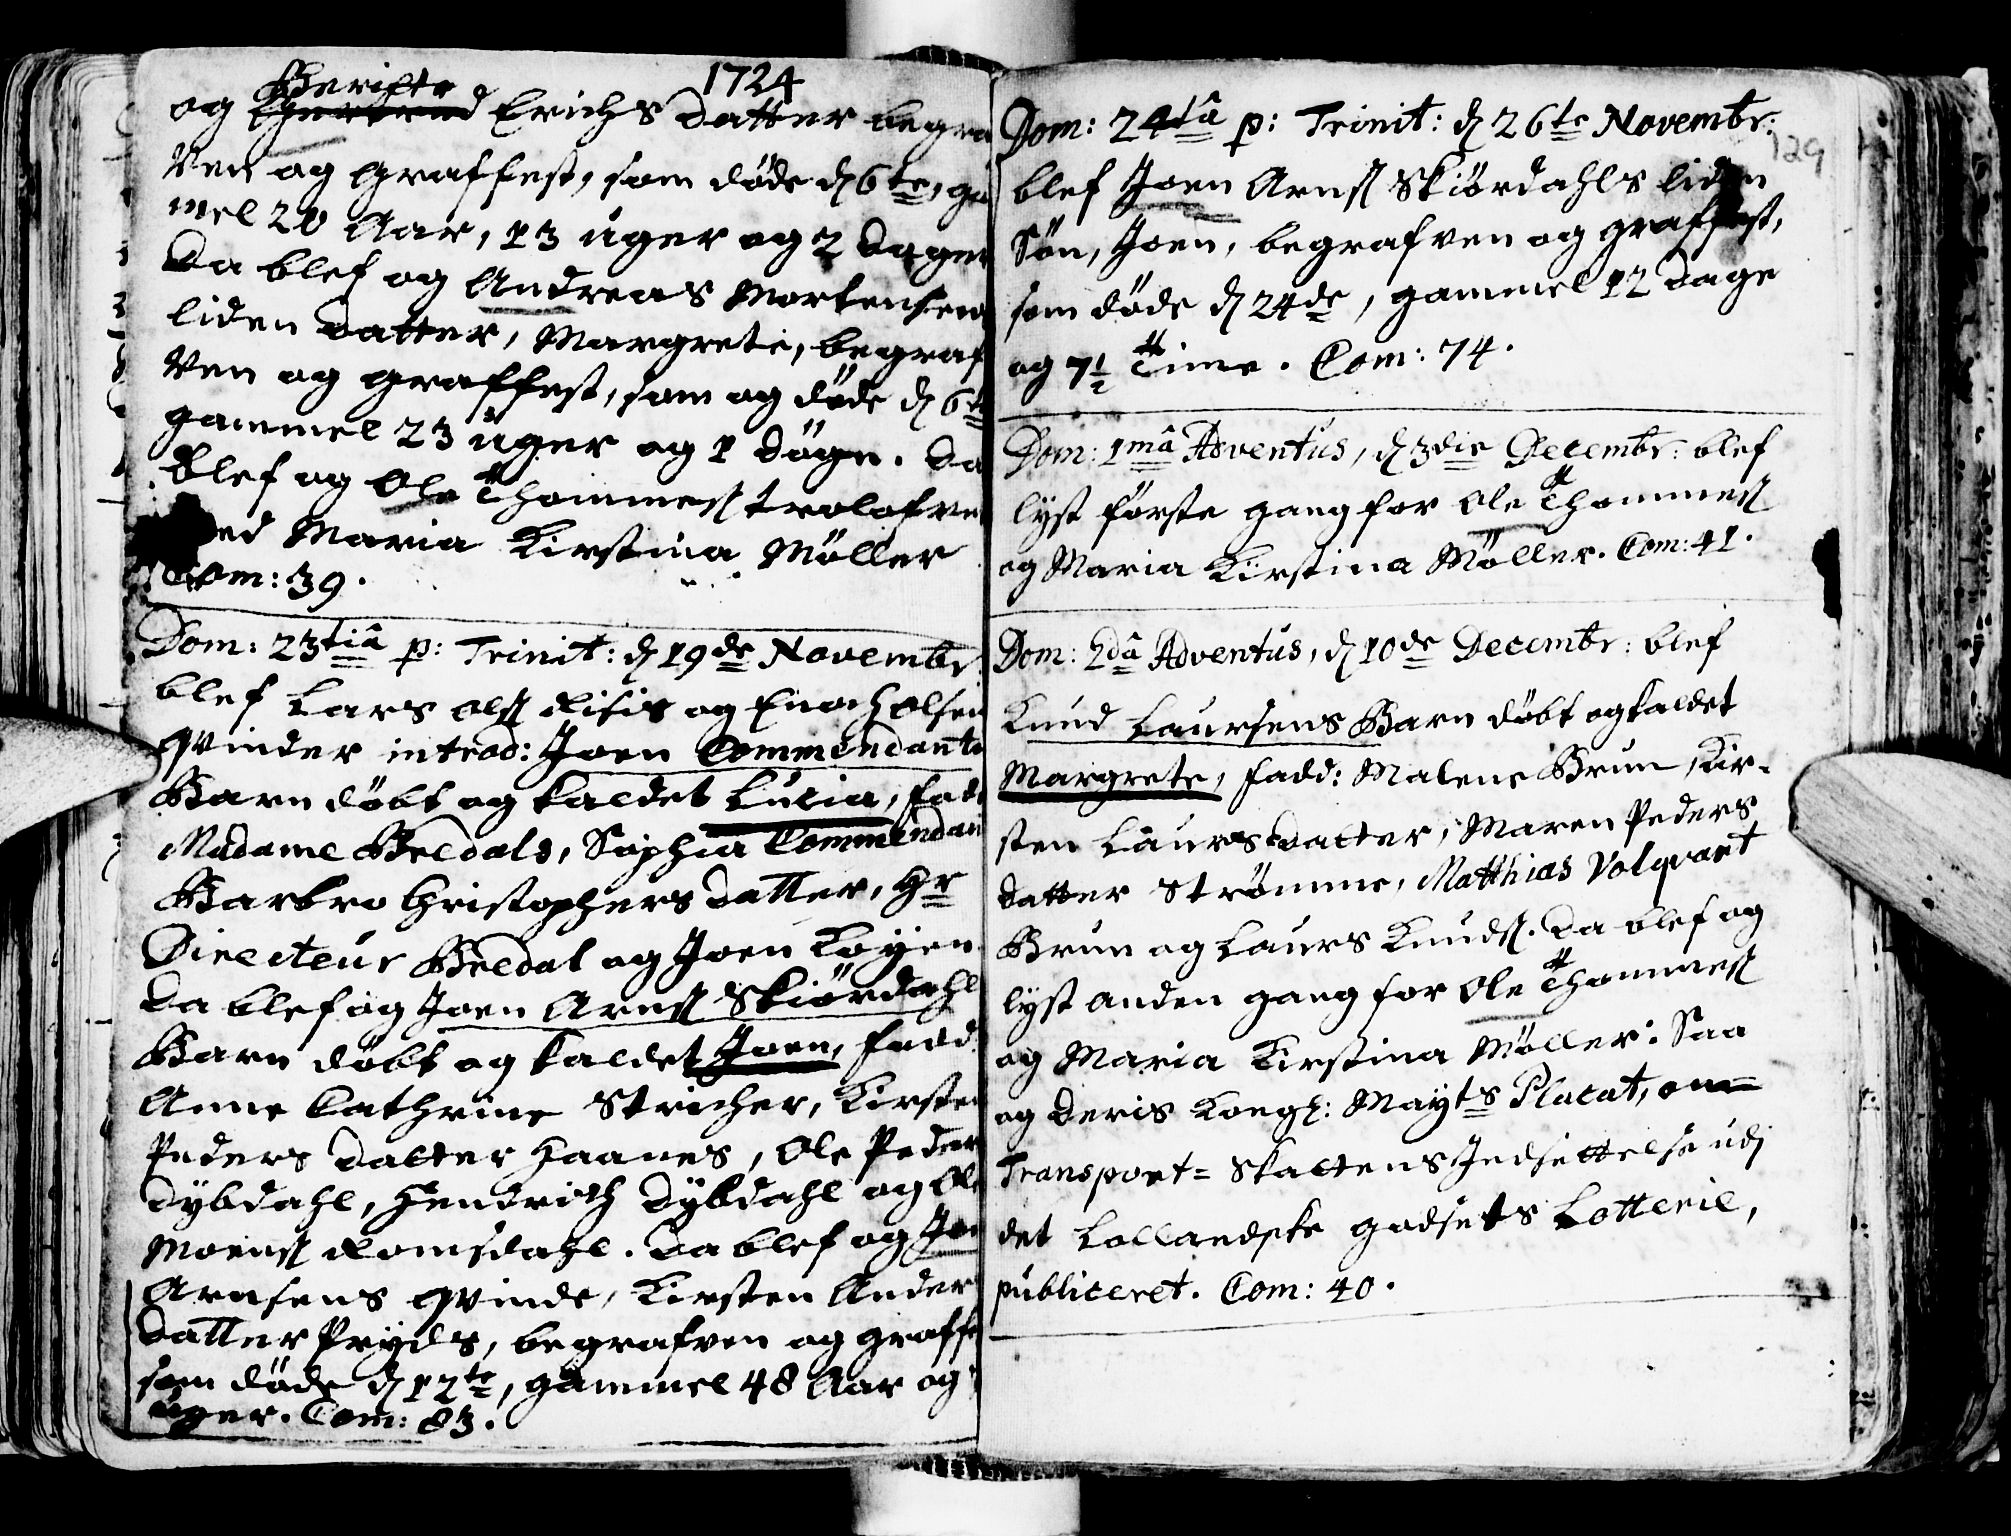 1724
Beritte
og Erichs datter begra
ven og graffest, som døde d 6te, ga
mel 20 Aar, 13 uger og 2 dager
Da blef og Andreas Mortensens
liden datter, Margrete, begraf
ven og graffest, som og døde d 6te
gammel 23 uger og 1 døgn. Da
blef og Ole Thommesß trolofvet
med Maria Kirstina Møller
Com: 39.
Dom: 23tiâ p: Trinit: d 19de Novembr:
blef Lars Olsß Risis og Enoch Olsens
qvinder introd: Joen Commendants
Barn døbt og kaldet Lucia, fadd
Madame Bredals, Sophia Commendan
Barbro Christophers datter, Hr
Directeur Bredal og Joen Køyen
Da blef og Joen Arnsß Skiørdahls
Barn døbt og kaldet Joen, fadd:
Anne Cathrine Stricher, Kirsten
Peders datter Haanes, Ole Peder
Dybdahl, Hendrich Dybdahl og Ole
Moensß Romsdahl. Da blef og Joen
Arnsens qvinde, Kirsten Anders
datter Pryds, begrafven og graffe
som døde d 12te, gammel 48 Aar og
uger. Com: 83.
129
Dom: 24tâ p: Trinit: d 26te Novembr:
blef Joen Arnsß Skiørdahls liden
Søn, Joen, begrafven og graffest,
som døde d 24de, gammel 12 dage
og 7½ Time. Com: 74.
Dom: 1mâ Adventus, d 3die Decembr: blef
lyst første gang for Ole Thommesß
og Maria Kirstina Møller. Com: 41.
Dom: 2dâ Adventus, d 10de Decembr: blef
Knud Laursens Barn døbt og kaldet
Margrete, fadd: Malene Brun, Kir-
sten Laurs datter, Maren Peders
datter Strømme, Matthias Volqvart
Brun og Laurs Knudsß. Da blef og
lyst anden gang for Ole Thommesß
og Maria Kirstina Møller: Saa
og Deris Kongl: Mayts Placat, om
Transport=Skattens Indsettelse udj
det Lollandske godsets Lotterie,
publiceret. Com: 40.